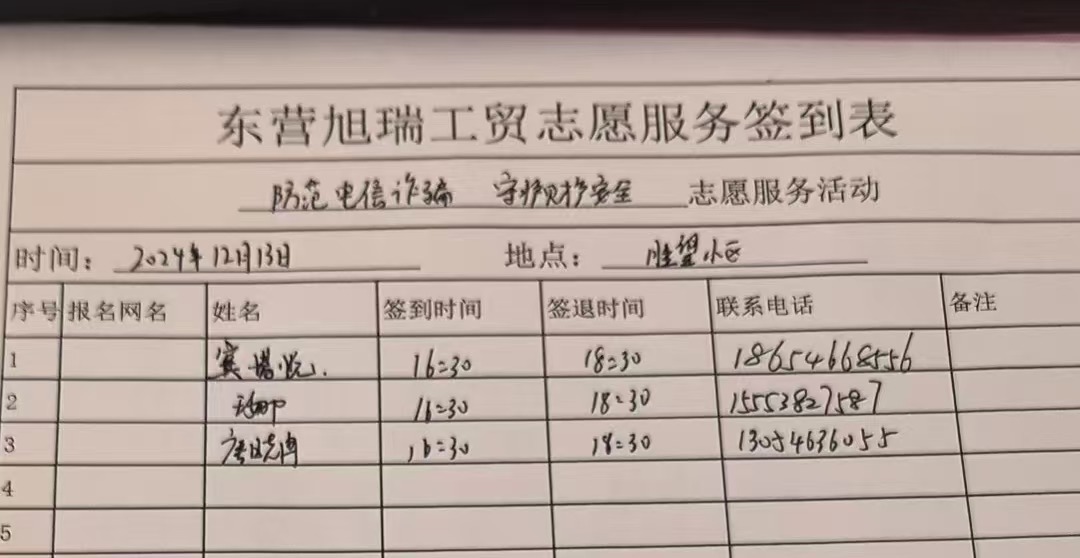 东营旭瑞工贸志愿服务签到表
防范电信诈骗 守护财产安全 志愿服务活动
时间： 2024年12月13日 地点： 胜望小区
序号 报名网名 姓名 签到时间 签退时间 联系电话 备注
1 16:30 18:30 18654668556
2 16:30 18:30 15553827587
3 唐晓倩 16:30 18:30 13054636055
4
5